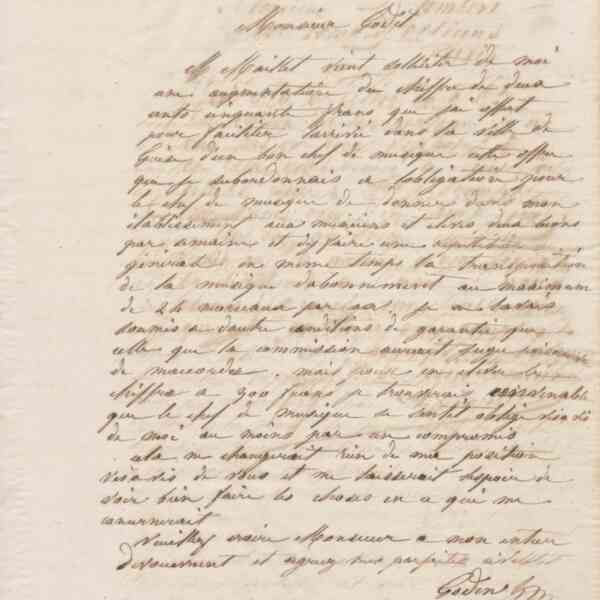 Monsieur Godet
M Maillet vient solliciter de moi
une augmentation du chiffre de deux
cents cinquante francs que j'ai offert
pour faciliter l'arrivée dans la ville de
Guise d'un bon chef de musique cette offre
que je subordonnais a l'obligation pour
le chef de musique de donner dans mon
établissement aux musiciens et élèves deux leçons
par semaine et d'y faire une répétition
générale en même temps la transposition
de la musique d'abonnement au maximum
de 24 morceaux par an. je ne l'avais
soumis a d'autre conditions de garantie que
celle que la commission aurait jugé
de m'accorder. mais pour en élever le
chiffre a 300 francs je trouverais convenable
que le chef de musique se sentit obligé vis a vis
de moi au moins par un compromis
cela ne changerait rien de ma position
vis a vis de vous et me laisserait l'espoir de
voir bien faire les choses en ce qui me
concernerait
Veuillez croire Monsieur a mon entier
dévouement et agréez mes parfaites civilités
Godin